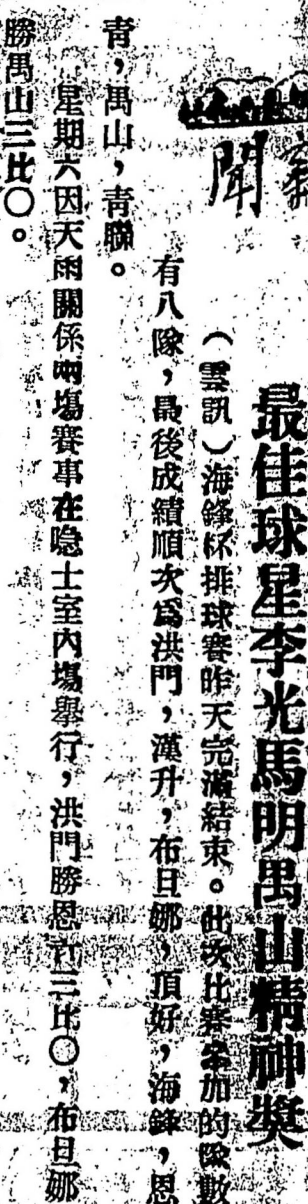 聞
最佳球星李光馬明禺山精神獎
(雲訊)海鋒杯排球賽昨天完滿結束。此次比賽參加的隊數
有八隊,最後成績順次爲洪門,漢升,布旦娜,頂好,海鋒,恩
青,禺山,青聯。
星期六因天雨關係兩場賽事在隐士室內場舉行,洪門勝恩青三比〇,布旦娜
勝禺山三比〇。